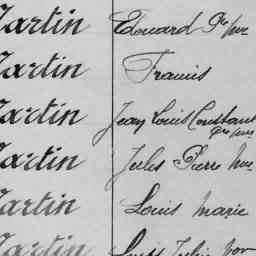 Martin Edouard Pre Mie
Martin Francis
Martin Jean Louis Constant
Martin Jules Pierre Mie
Martin Louis Marie
Martin Louis Julien